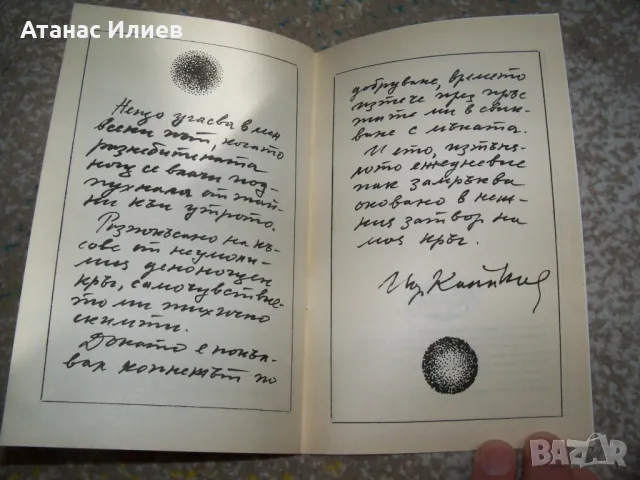 Атанас Илиев
Нещо угасва в мен
всеки път, когато
разнебитената
нощ се влачи под-
пухнала от
ни към утрото.
Разпокъсано на къ-
сове от неумоли-
мия денонощен
кръг, самочувствие-
то ми тихичко
скимти.
Докато е
вал копнежът по
добруване, времето
изтече през пръс-
тите ми в свик-
ване с мъката.
И ето, изтъня-
лото ежедневие
пак замръква
оковано в неж-
ния затвор на
моя кръг.
BAZAR
bg